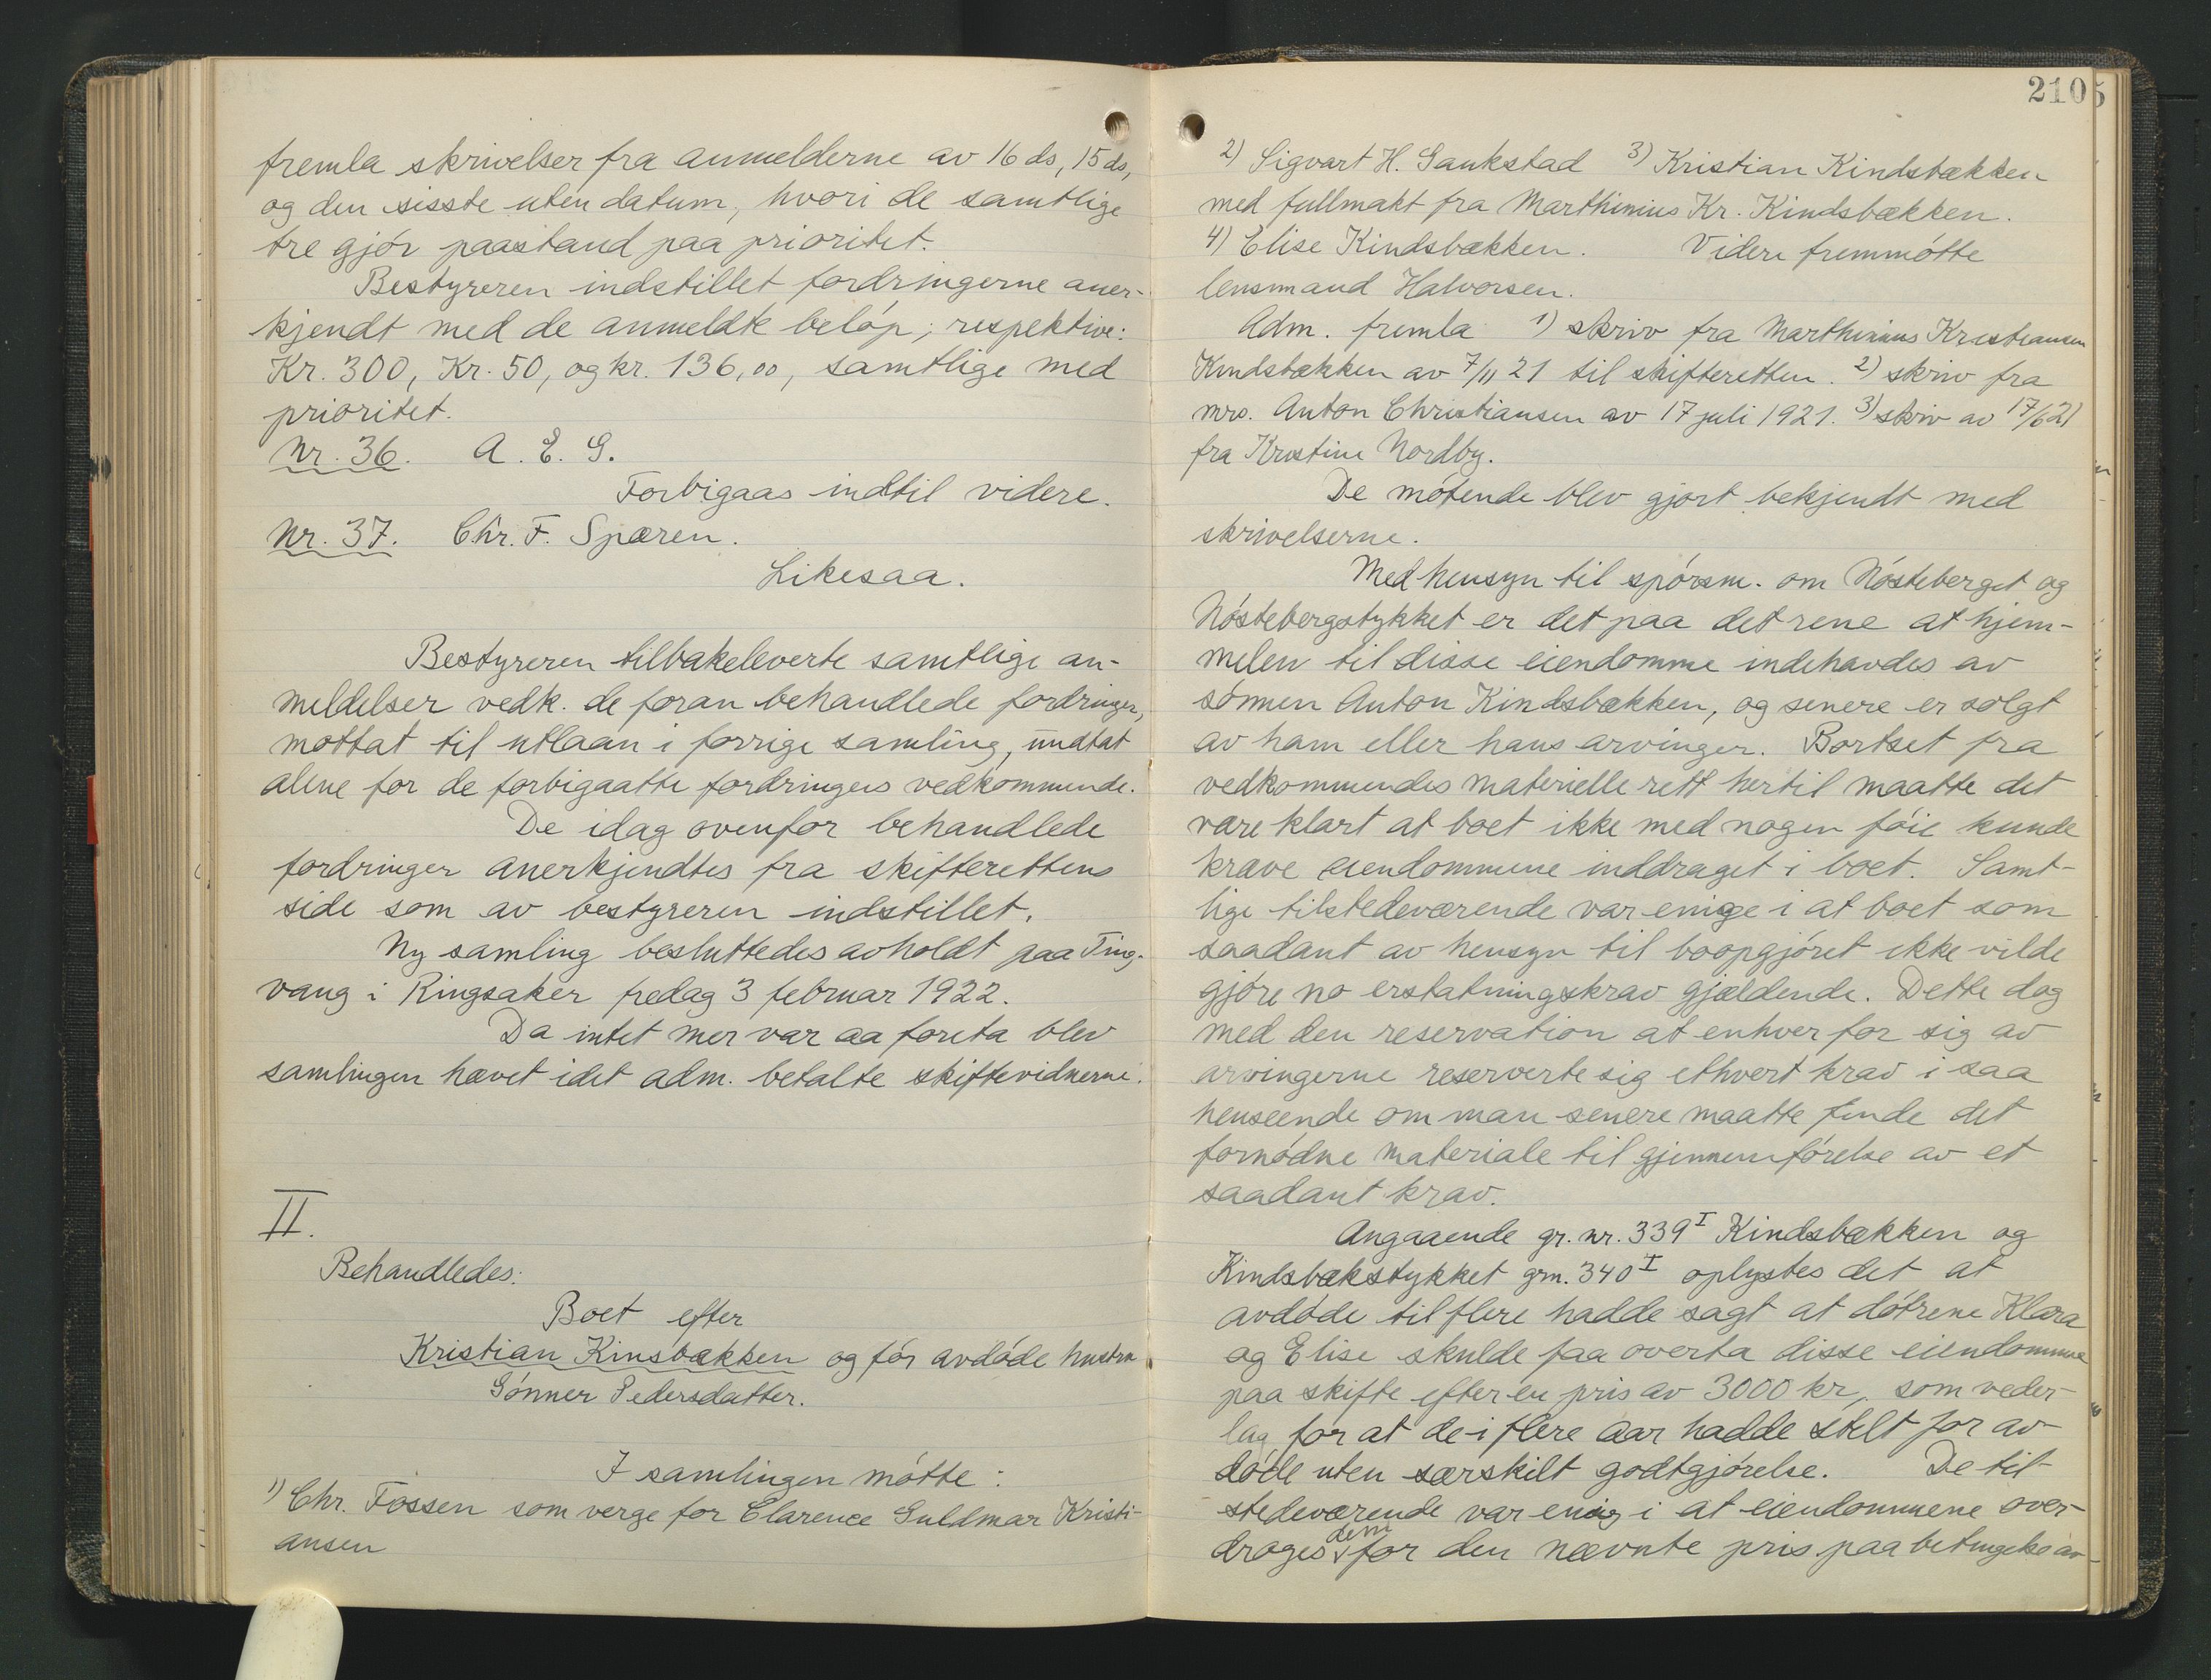 fremla skrivelser fra anmelderne av 16 ds, 15 ds,
og den sisste uten datum, hvori de samtlige
tre gjör paastand paa prioritet.
Bestyreren indstillet fordringerne aner-
kjendt med de anmeldte belöp; respektive:
Kr. 300, Kr. 50, og kr. 136,00, samtlige med
prioritet.
Nr. 36. A. E. G.
Forbigaas indtil videre.
Nr. 37. Chr. F. Spæren.
Likesaa.
Bestyreren tilbakeleverte samtlige an-
meldelser vedk. de foran behandlede fordringer,
mottat til utlaan i forrige samling, undtat
alene for de forbigaatte fordringers vedkommende.
De idag ovenfor behandlede
fordringer anerkjendtes fra skifterettens
side som av bestyreren indstillet.
Ny samling besluttedes avholdt paa Ting-
vang i Ringsaker fredag 3 februar 1922.
Da intet mer var aa foreta blev
samlingen hævet idet adm. betalte skiftevidnerne.
II.
Behandledes:
Boet efter
Kristian Kinsbækken og för avdöde hustru
Gönner Pedersdatter.
I samlingen mötte:
1) Chr. Fossen som verge for Clarence Guldmar Kristi-
ansen
210
2) Sigvart H. Gaukstad 3) Kristian Kindsbækken
med fullmakt fra Marthinius Kr. Kindsbækken.
4) Elise Kindsbækken. Videre fremmötte
lensmand Halvorsen.
Adm. fremla 1) skriv fra Marthinius Kristiansen
Kindsbækken av 7/11 21 til skifteretten. 2) skriv fra
mrs. Anton Christiansen av 17 juli 1921. 3) skriv av 17/6 21
fra Kristine Nordby.
De mötende blev gjort bekjendt med
skrivelserne.
Med hensyn til spörsm. om Nösteberget og
Nöstebergstykket er det paa det rene at hjem-
melen til disse eiendomme indehavdes av
sönnen Anton Kindsbækken, og senere er solgt
av ham eller hans arvinger. Bortset fra
vedkommendes materielle rett hertil maatte det
være klart at boet ikke med nogen föie kunde
kræve eiendommene inddraget i boet. Samt-
lige tilstedeværende var enige i at boet som
saadant av hensyn til boopgjöret ikke vilde
gjöre no erstatningskrav gjældende. Dette dog
med den reservation at enhver for sig av
arvingerne reserverte sig ethvert krav i saa
henseende om man senere maatte finde det
fornödne materiale til gjennemförelse av et
saadant krav.
Angaaende gr. nr. 339 I Kindsbækken og
Kindsbækstykket grn. 340 I oplystes det at
avdöde til flere hadde sagt at döttrene Klara
og Elise skulde faa overta disse eiendomme
paa skifte efter en pris av 3000 kr, som veder-
lag for at de i flere aar hadde stelt for av-
döde uten særskilt godtgjörelse. De til-
stedeværende var enig i at eiendommene over-
drages dem for den nævnte pris paa betingelse av